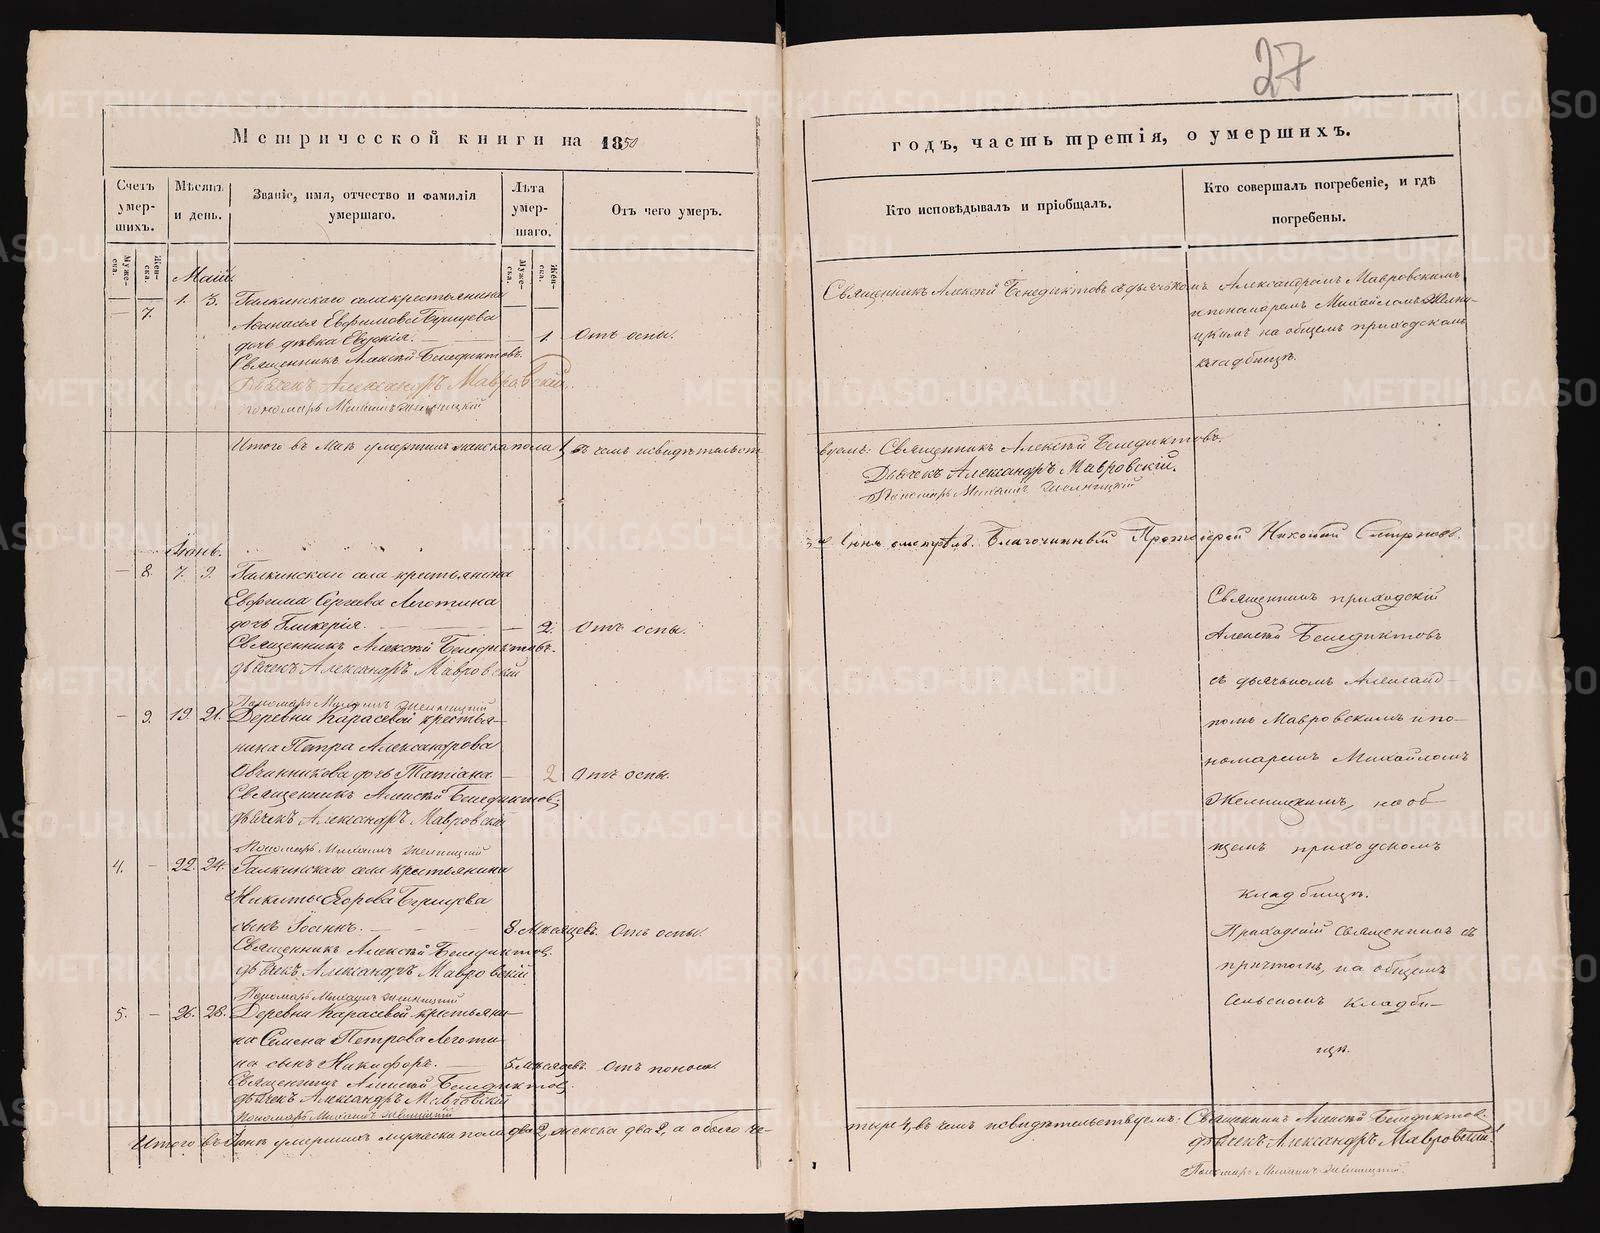 27
Метрической книги на 1850
годъ, часть третія, о умершихъ.
Счетъ умер- шихъ.
Мѣсяцъ и день.
Званіе, имя, отчество и фамилія умершаго.
Лѣта умер- шаго.
Отъ чего умеръ.
Кто исповѣдывалъ и пріобщалъ.
Кто совершалъ погребеніе, и гдѣ погребены.
Муже- ска.
Жен- ска.
Муже- ска.
Жен- ска.
Маій.
— 7. 1. 3. Галкинскаго села крестьянина
Аѳанасья Евфимова Бунцева
дочь дѣвка Евдокія. — 1. Отъ оспы.
Священникъ Алексѣй Бенедиктовъ.
Дьячекъ Александръ Мавровскій.
Пономарь Михаилъ Желницкій
Священникъ Алексѣй Бенедиктовъ съ дьячкомъ Александромъ Мавровскимъ
и пономаремъ Михайломъ Желни-
цкимъ на общемъ приходскомъ
кладбищѣ.
Итого въ Маѣ умершихъ женска пола 1, въ чемъ и свидѣтельст-
вуемъ: Священникъ Алексѣй Бенедиктовъ.
Дьячекъ Александръ Мавровскій.
Пономарь Михаилъ Желницкій
смотрѣлъ. Благочинный Протоіерей Николай Смирновъ.
Іюнь.
— 8. 7. 9. Галкинскаго села крестьянина
Евфима Сергѣева Леготина
дочь Гликерія. — 2. Отъ оспы.
Священникъ Алексѣй Бенедиктовъ.
дьячекъ Александръ Мавровскій
Пономарь Михаилъ Желницкій
— 9. 19. 21. Деревни Карасевой крестья-
нина Петра Александрова
Овчинникова дочь Татіана — 2 Отъ оспы.
Священникъ Алексѣй Бенедиктовъ.
дьячекъ Александръ Мавровскій
Пономарь Михаилъ Желницкій
4. — 22. 24. Галкинскаго села крестьянина
Никиты Егорова Бунцева
сынъ 8. Мѣсяцевъ. Отъ оспы.
Священникъ Алексѣй Бенедиктовъ.
дьячекъ Александръ Мавровскій
Пономарь Михаилъ Желницкій
5. — 26. 28. Деревни Карасевой крестьяни-
на Семена Петрова Леготи-
на сынъ Никифоръ. 5. Мѣсяцевъ. Отъ поноса.
Священникъ Алексѣй Бенедиктовъ
дьячекъ Александръ Мавровскій
Пономарь Михаилъ Желницкій
Священникъ приходскій
Алексѣй Бенедиктовъ
съ дьячкомъ Александ-
ромъ Мавровскимъ и по-
номаремъ Михайломъ
Желницкимъ, на об-
щемъ приходскомъ
кладбищѣ.
Приходскій священникъ съ
причтомъ, на общемъ
сельскомъ кладби-
щѣ.
Итого въ Іюнѣ умершихъ мужеска пола два 2, женска два 2, а обоего че-
тыре 4, въ чемъ и свидѣтельствуемъ: Священникъ Алексѣй Бенедиктовъ.
дьячекъ Александръ Мавровскій.
Пономарь Михаилъ Желницкій.
METRIKI.GASO-URAL.RU